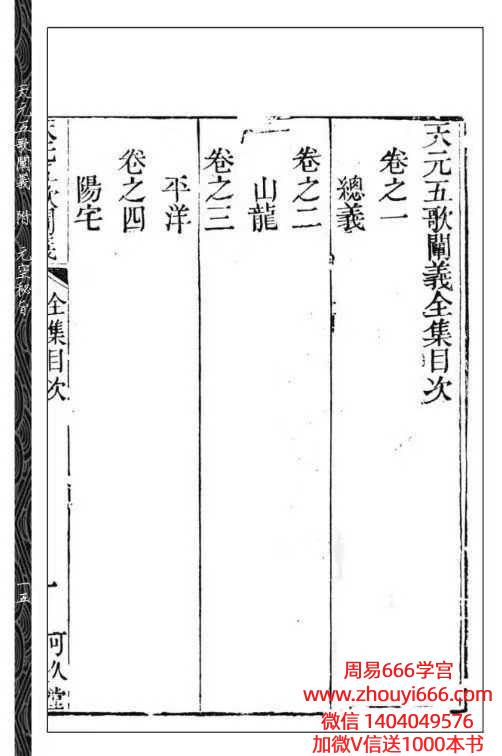 天元五歌闡義全集目次
卷之一
總義
卷之二
山龍
卷之三
平洋
卷之四
陽宅
全集目次
天元五歌闡義 附 元空秘旨
一五
周易666学宫
www.zhouyi666.com
微信 1404049576
加微V信送1000本书